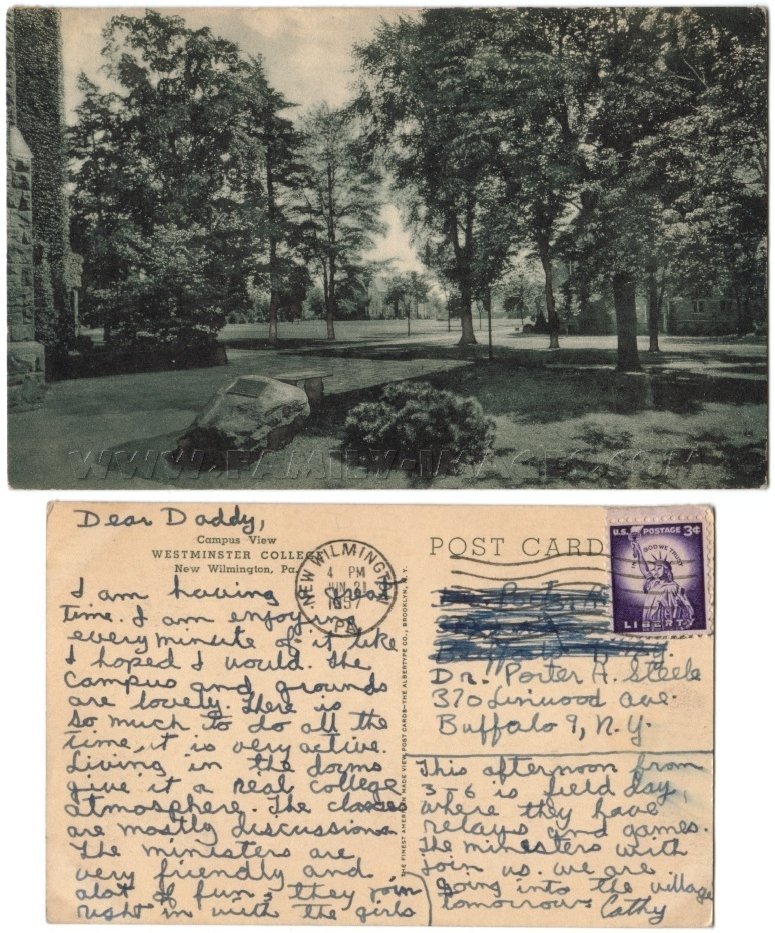 WWW.FAMILY-IMAGES.COM
Dear Daddy,
Campus View
WESTMINSTER COLLEGE
New Wilmington, Pa.
I am having a great
time. I am enjoying
every minute of it like
I hoped I would. The
campus and grounds
are lovely. There is
so much to do all the
time, it is very active.
Living in the dorms
give it a real college
atmosphere. The classes
are mostly discussions.
The ministers are
very friendly and
alot of fun, they join
right in with the girls
NEW WILMINGTON
4 PM
JUN 21
1957
PA
THE FINEST AMERICAN MADE VIEW POST CARDS—THE ALBERTYPE CO., BROOKLYN, N.Y.
POST CARD
U.S. POSTAGE 3¢
IN GOD WE TRUST
LIBERTY
Dr. Porter A. Steele
370 Linwood ave.
Buffalo 9, N.Y.
This afternoon from
3-6 is field day,
where they have
relays and games.
The ministers with
join us. we are
going into the village
tomorrow. Cathy